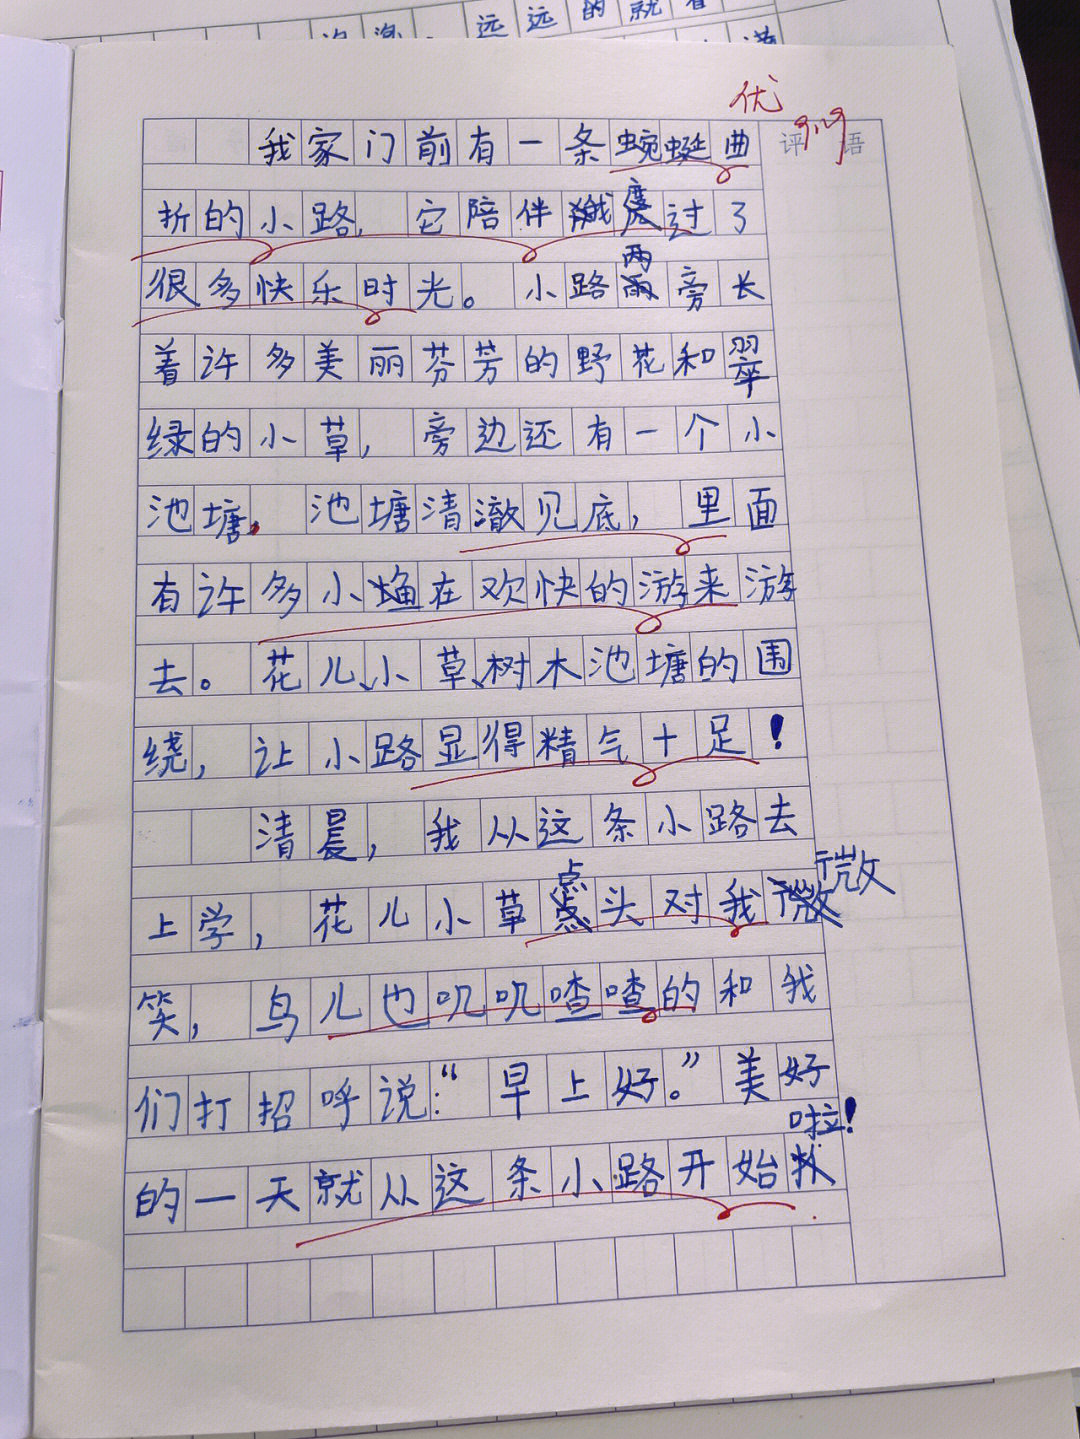 远远的就看
优
9.19
评语
我家门前有一条蜿蜒曲
折的小路,它陪伴我度过了
很多快乐时光。小路两旁长
着许多美丽芬芳的野花和翠
绿的小草,旁边还有一个小
池塘。池塘清澈见底,里面
有许多小鱼在欢快的游来游
去。花儿、小草、树木池塘的围
绕,让小路显得精气十足!
清晨,我从这条小路去
上学,花儿小草点头对我微
笑,鸟儿也叽叽喳喳的和我
们打招呼说:“早上好。”美好
的一天就从这条小路开始啦!